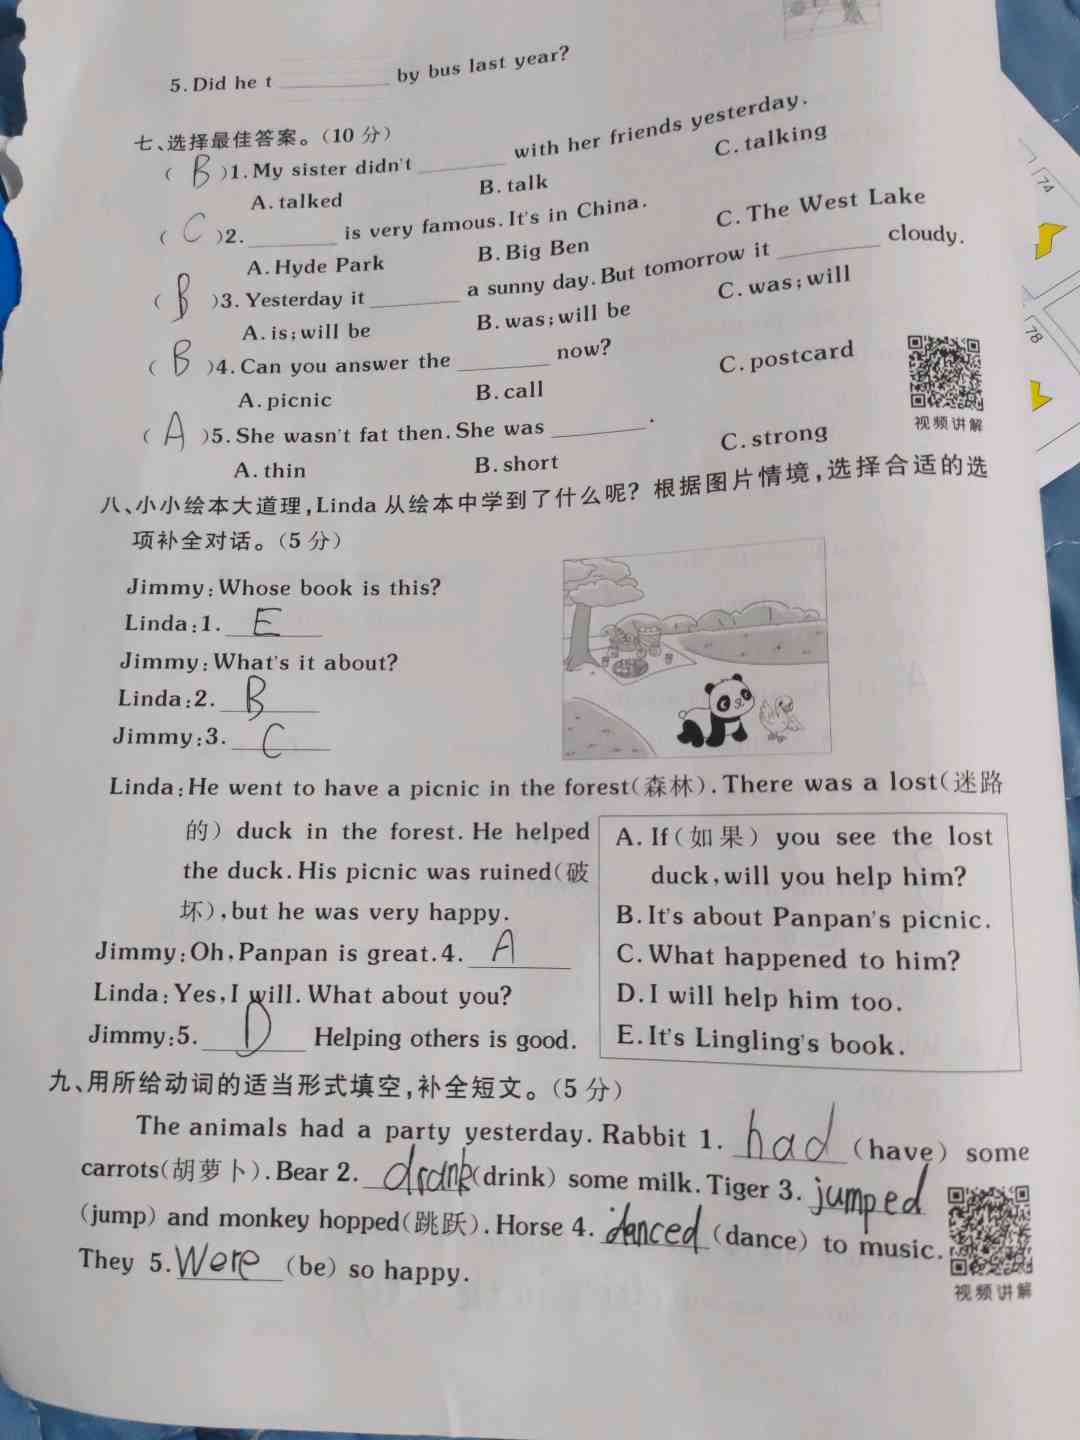 5.Did he t________ by bus last year?
七、选择最佳答案。(10分)
( B )1.My sister didn't ________ with her friends yesterday.
A.talked B.talk C.talking
( C )2.________ is very famous.It's in China.
A.Hyde Park B.Big Ben C.The West Lake
( B )3.Yesterday it ________ a sunny day.But tomorrow it ________ cloudy.
A.is;will be B.was;will be C.was;will
( B )4.Can you answer the ________ now?
A.picnic B.call C.postcard
( A )5.She wasn't fat then.She was ________.
A.thin B.short C.strong
视频讲解
八、小小绘本大道理,Linda从绘本中学到了什么呢?根据图片情境,选择合适的选
项补全对话。(5分)
Jimmy:Whose book is this?
Linda:1. E
Jimmy:What's it about?
Linda:2. B
Jimmy:3. C
Linda:He went to have a picnic in the forest(森林).There was a lost(迷路
的) duck in the forest.He helped
the duck.His picnic was ruined(破
坏),but he was very happy.
Jimmy:Oh,Panpan is great.4. A
Linda:Yes,I will.What about you?
Jimmy:5. D Helping others is good.
A.If(如果) you see the lost
duck,will you help him?
B.It's about Panpan's picnic.
C.What happened to him?
D.I will help him too.
E.It's Lingling's book.
九、用所给动词的适当形式填空,补全短文。(5分)
The animals had a party yesterday. Rabbit 1. had (have) some
carrots(胡萝卜).Bear 2. drank (drink) some milk.Tiger 3. jumped
(jump) and monkey hopped(跳跃).Horse 4. danced (dance) to music.
They 5. were (be) so happy.
视频讲解
74
78